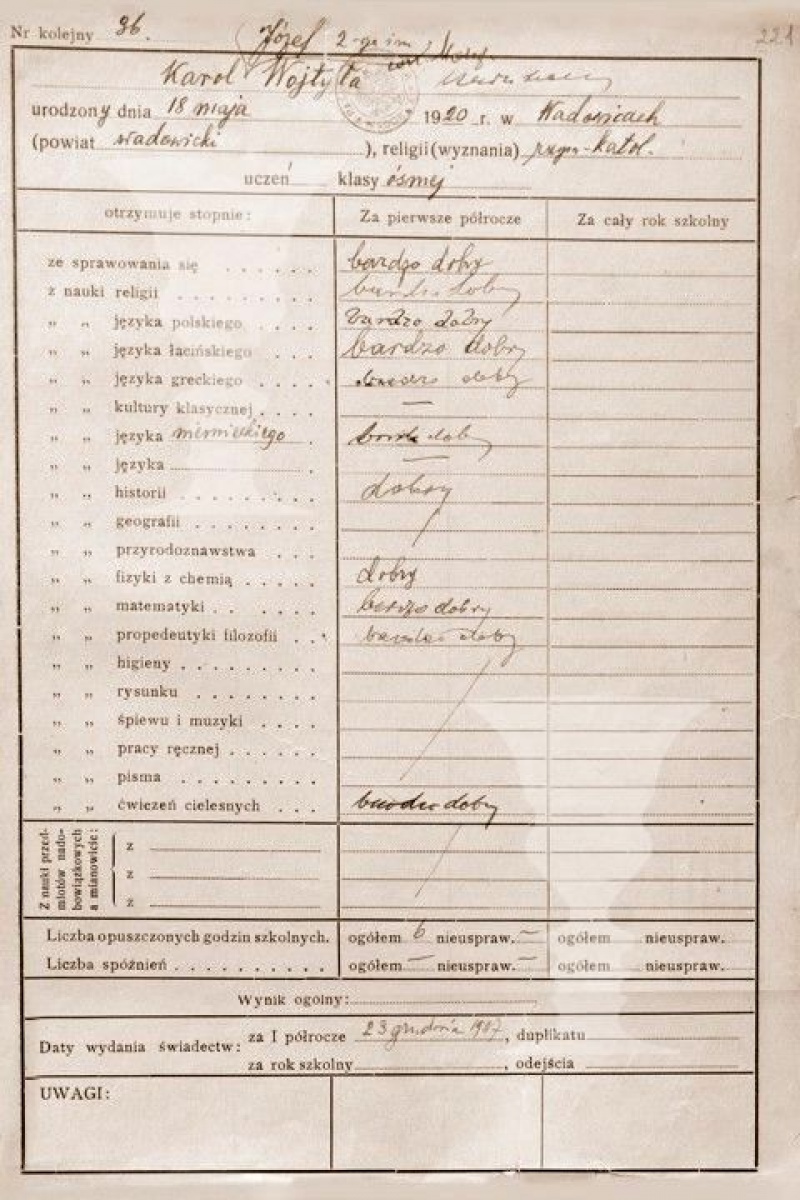 Nr kolejny 36. Józef 2-ge im 221
Karol Wojtyła
urodzony dnia 18 maja 1920 r. w Wadowicach
(powiat wadowicki ), religii (wyznania) rzym-katol.
uczeń klasy ósmej
otrzymuje stopnie: Za pierwsze półrocze Za cały rok szkolny
ze sprawowania się . . . . . . bardzo dobry
z nauki religii . . . . . . . . . bardzo dobry
„ „ języka polskiego . . . . bardzo dobry
„ „ języka łacińskiego . . . bardzo dobry
„ „ języka greckiego . . . . bardzo dobry
„ „ kultury klasycznej . . . . —
„ „ języka niemieckiego . bardzo dobry
„ „ języka . —
„ „ historii . . . . . . . . dobry
„ „ geografii . . . . . . .
„ „ przyrodoznawstwa . . .
„ „ fizyki z chemią . . . . . dobry
„ „ matematyki . . . . . . bardzo dobry
„ „ propedeutyki filozofii . . . bardzo dobry
„ „ higieny . . . . . . . . .
„ „ rysunku . . . . . . .
„ „ śpiewu i muzyki . . . .
„ „ pracy ręcznej . . . . . .
„ „ pisma . . . . . . . . .
„ „ ćwiczeń cielesnych . . . bardzo dobry
Z nauki przed-
miotów nado-
bowiązkowych
a mianowicie:
z
z
z
Liczba opuszczonych godzin szkolnych. ogółem 6 nieuspraw. — ogółem nieuspraw.
Liczba spóźnień . . . . . . . . . . ogółem — nieuspraw. — ogółem nieuspraw.
Wynik ogolny:
Daty wydania świadectw: za I półrocze 23 grudnia 1937, duplikatu
za rok szkolny , odejścia
UWAGI: